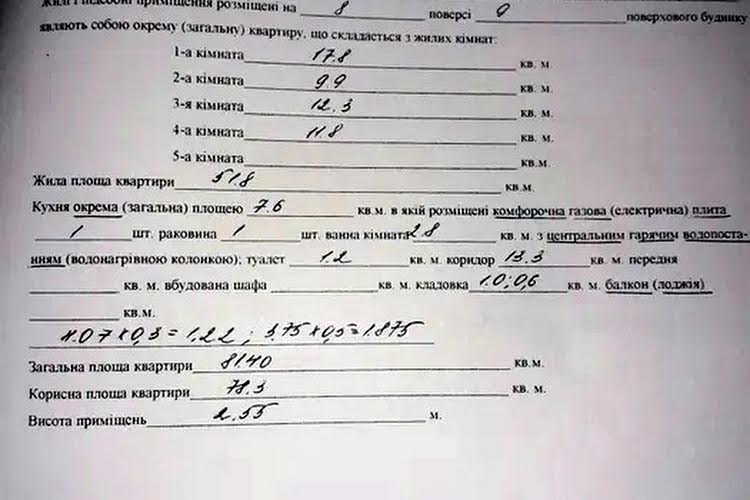 Жилі і підсобні приміщення розміщені на 8 поверсі 9 поверхового будинку
являють собою окрему (загальну) квартиру, що складається з жилих кімнат:
1-а кімната 17.8 кв. м.
2-а кімната 9.9 кв. м.
3-я кімната 12.3 кв. м.
4-а кімната 11.8 кв. м.
5-а кімната кв.м.
Жила площа квартири 51.8 кв.м.
Кухня окрема (загальна) площею 7.6 кв.м. в якій розміщені комфорочна газова (електрична) плита
1 шт. раковина 1 шт. ванна кімната 2.8 кв. м. з центральним гарячим водопоста-
нням (водонагрівною колонкою); туалет 1.2 кв. м. коридор 13.3 кв. м. передня
кв. м. вбудована шафа кв. м. кладовка 1.0; 0,6 кв. м. балкон (лоджія)
кв.м.
4.07 x 0,3 = 1.22 ; 3,75 x 0,5 = 1.875
Загальна площа квартири 81.40 кв.м.
Корисна площа квартири 78.3 кв. м.
Висота приміщень 2.55 м.